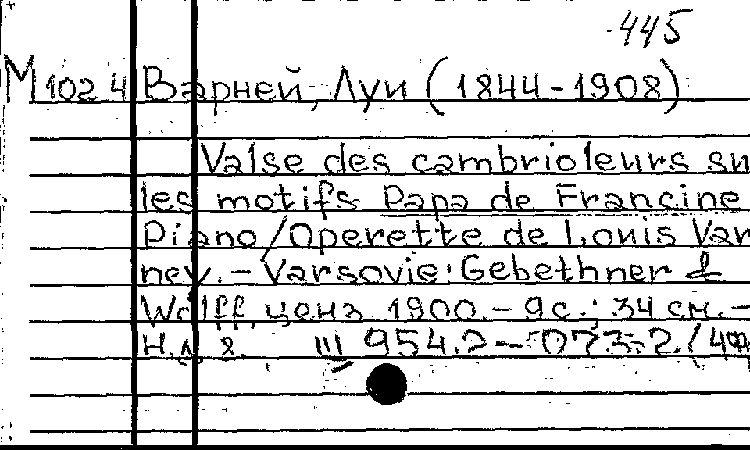 445
М 102 4 Варней, Луи (1844-1908)
Valse des cambrioleurs su
les motifs Papa de Francine
Piano/Operette de Louis Var
ney. - Varsovie: Gebethner &
Wolff, ценз 1900. - 9 с.; 34 см. -
Н.д. 8. III 954.2 -